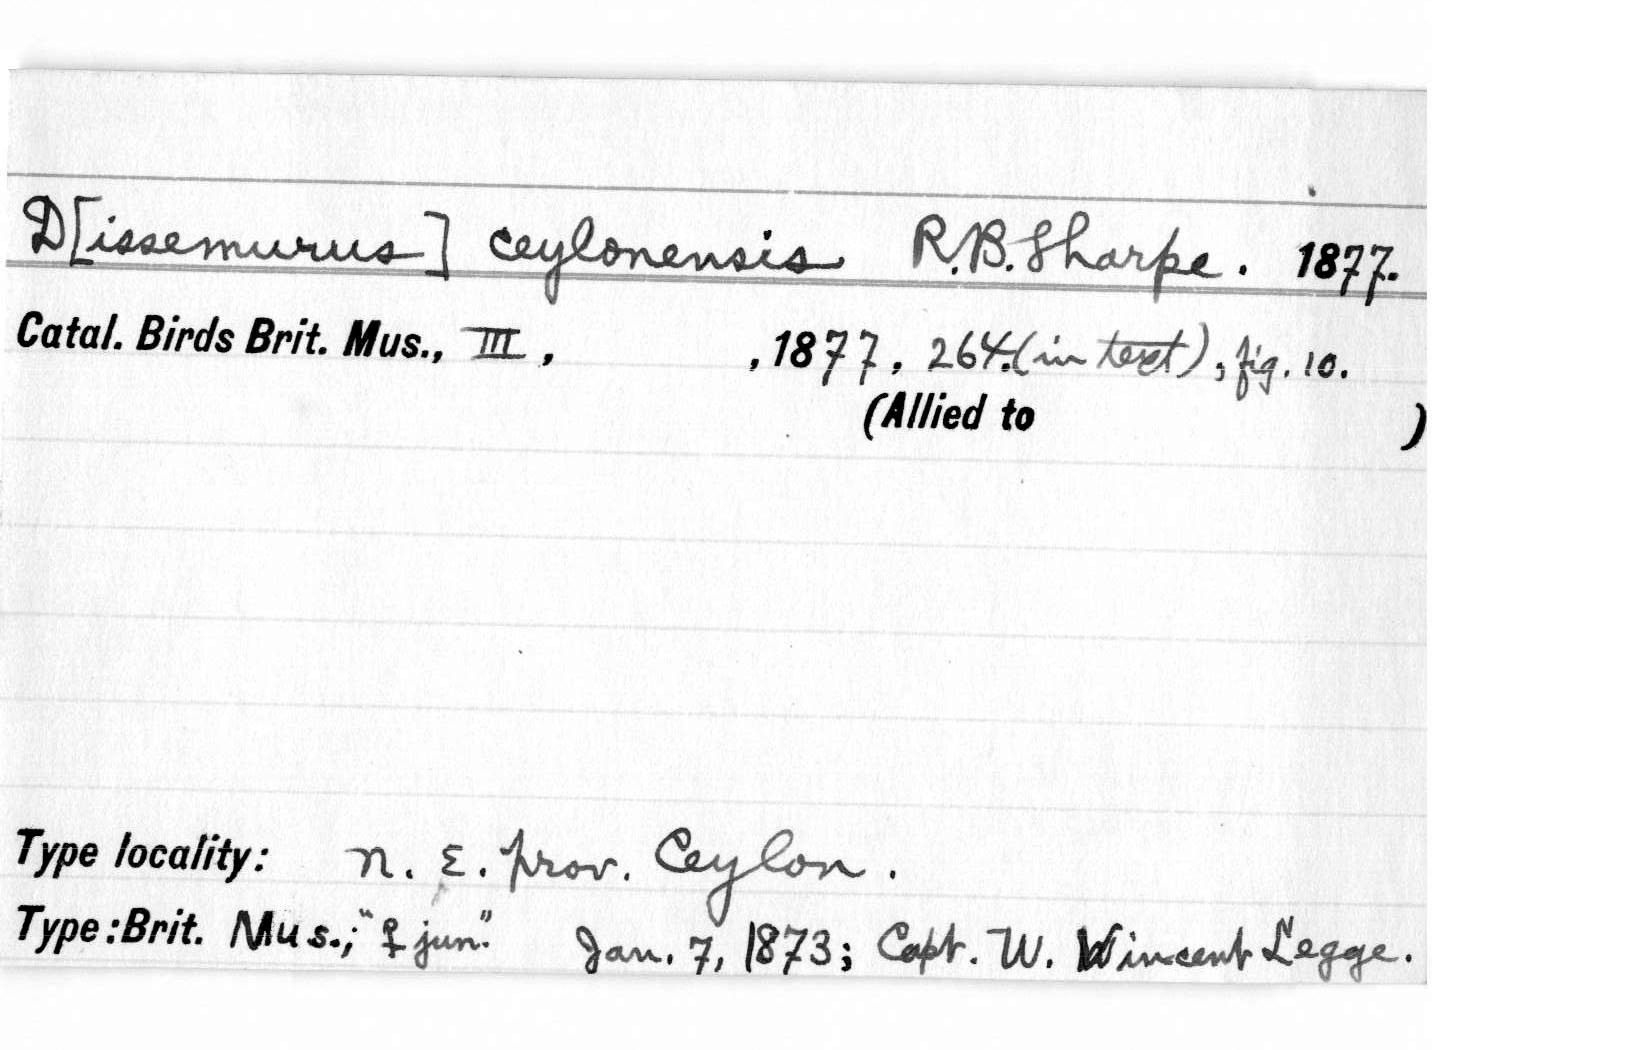 D[issemurus] ceylonensis R.B.Sharpe. 1877.
Catal. Birds Brit. Mus., III, , 1877, 264.(in text), fig. 10.
(Allied to )
Type locality: N. E. prov. Ceylon.
Type:Brit. Mus.; "♀ jun." Jan. 7, 1873; Capt. W. Wincent Legge.